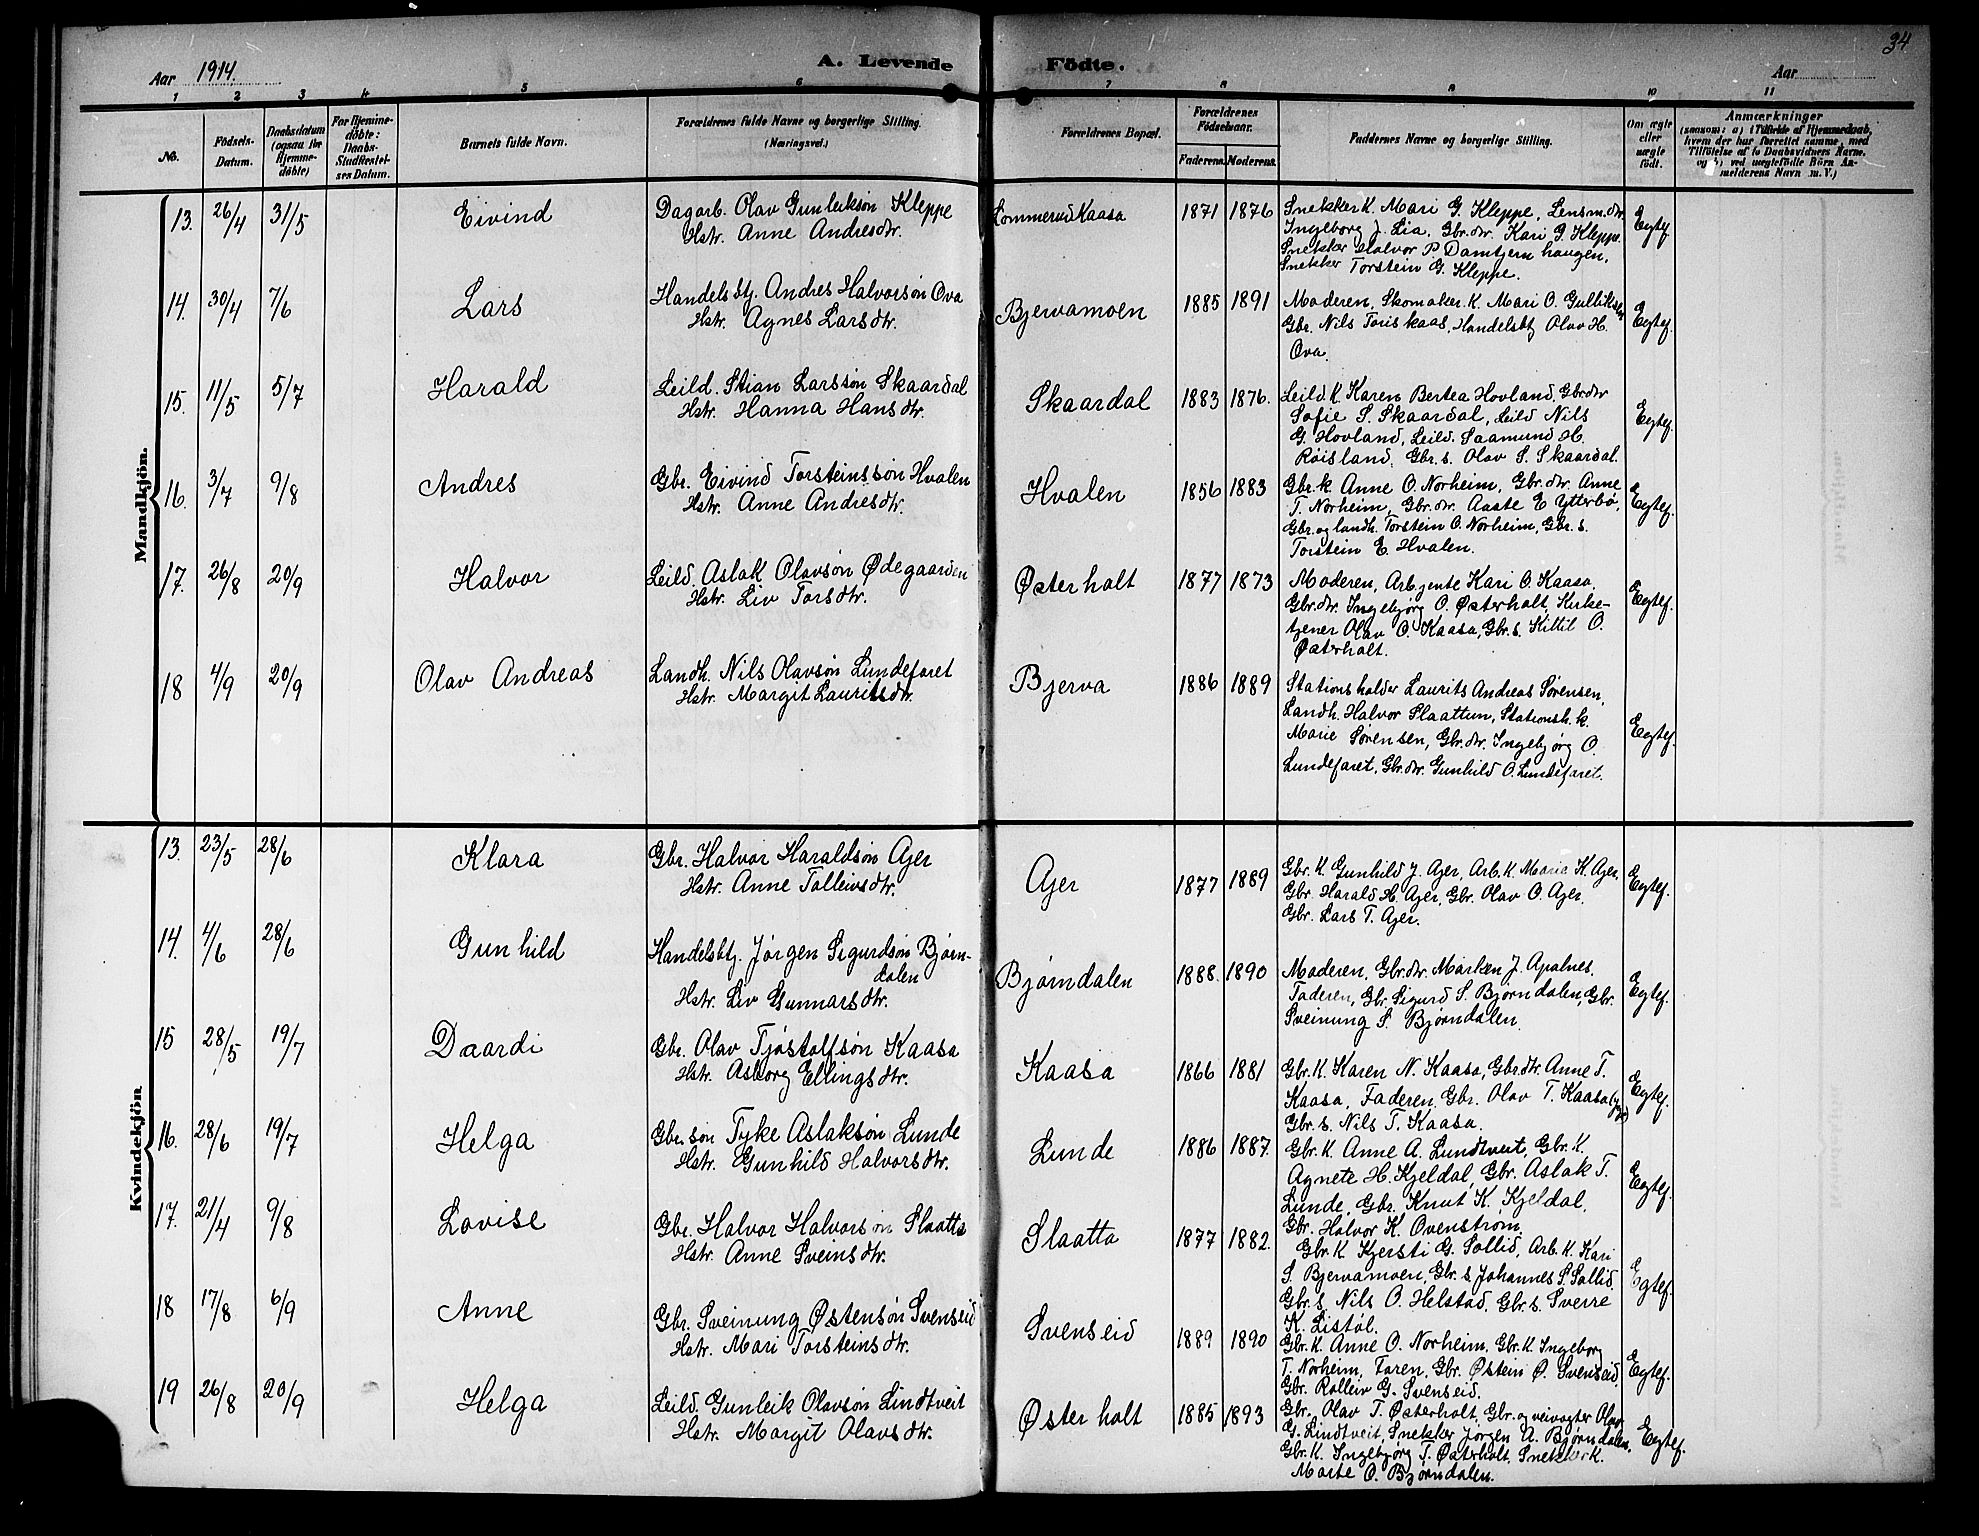 34
Aar 1914.
A. Levende Födte.
Aar
1 2 3 4 5 6 7 8 9 10 11
No.
Födsels-Datum.
Daabsdatum (ogsaa for Hjemme-döbte)
For Hjemme-döbte: Daabs-Stadfæstel-ses Datum.
Barnets fulde Navn.
Forældrenes fulde Navne og borgerlige Stilling. (Næringsvei.)
Forældrenes Bopæl.
Forældrenes Födselsaar.
Faderens. Moderens.
Faddernes Navne og borgerlige Stilling.
Om ægte eller uægte födt.
Anmærkninger
(saasom: a) i Tilfælde af Hjemmedaab,
hvem der har forrettet samme, med
Tilföielse af to Daabsvidners Navne,
og b) ved uægtefödte Börn An-
melderens Navn m. V.)
Mandkjön.
13. 26/4 31/5 Eivind
Dagarb. Olav Gunleiksøn Kleppe
Hstr. Anne Andresdtr.
Lommerud Kaasa 1871 1876
Snekker K. Mari G. Kleppe, Lensm.dtr.
Ingeborg J. Lia, Gbr.dtr. Kari G. Kleppe.
Snekker Halvor P. Damtjernhaugen,
Snekker Torstein G. Kleppe.
Egtef.
14. 30/4 7/6 Lars
Handelsbtj. Andres Halvorsøn Ova
Hstr. Agnes Larsdtr.
Bjervamoen 1885 1891
Moderen, Skomaker.K. Mari O. Gulliksen
Gbr. Nils Toriskaas, Handelsbtj Olav H.
Ova.
Egtef.
15. 11/5 5/7 Harald
Leild. Stian Larssøn Skaardal
Hstr. Hanna Hansdtr.
Skaardal 1883 1876.
Leild. K. Karen Bertea Hovland, Gbr.dtr
Sofie S. Skaardal, Leild Nils
G. Hovland, Leild. Saamund H.
Røisland, Gbr. s. Olav S. Skaardal.
Egtef.
16. 3/7 9/8 Andres
Gbr. Eivind Torsteinssøn Hvalen
Hstr. Anne Andresdtr.
Hvalen 1856 1883
Gbr. k. Anne O. Norheim, Gbr. dtr. Anne
T. Norheim, Gbr. dtr. Aaste E Ytterbø,
Gbr. og landh. Torstein O. Norheim, Gbr. s.
Torstein E. Hvalen.
Egtef.
17. 26/8 20/9 Halvor
Leild. Aslak Olavsøn Ødegaarden
Hstr. Liv Torsdtr.
Østerholt 1877 1873
Moderen, Arb.jente Kari O. Kaasa,
Gbr.dtr. Ingebjørg O. Østerholt, Kirke-
tjener Olav O. Kaasa, Gbr. s. Kittil O.
Østerholt.
Egtef.
18 4/9 20/9 Olav Andreas
Landh. Nils Olavsøn Lundefaret
Hstr. Margit Lauritsdtr.
Bjerva 1886 1889
Stationsholder Laurits Andreas Sørensen,
Landh. Halvor Slaattun, Stationsh. k.
Marie Sørensen, Gbr. dtr. Ingebjørg O.
Lundefaret, Gbr. dtr. Gunhild O. Lundefaret.
Egtef.
Kvindekjön
13. 23/5 28/6 Klara
Gbr. Halvor Haraldsøn Ajer
Hstr. Anne Talleivsdtr.
Ajer 1877 1889
Gbr. K. Gunhild J. Ajer, Arb. K. Maria K. Ajer,
Gbr. Harald H. Ajer, Gbr. Olav O. Ajer.
Gbr. Lars T. Ajer.
Egtef.
14. 4/6 28/6 Gunhild
Handelsbtj. Jørgen Sigurdsøn Bjørn-
dalen
Hstr. Liv Gunnarsdtr.
Bjørndalen 1888. 1890
Moderen, Gbr. dtr. Marken J. Apalnes.
Faderen, Gbr. Sigurd S. Bjørndalen, Gbr.
Sveinung S. Bjørndalen.
Egtef.
15 28/5 19/7 Daardi
Gbr. Olav Tjøstolfsøn Kaasa
Hstr. Asborg Ellingsdtr.
Kaasa 1866 1881
Gbr. K. Karen N. Kaasa, Gbr.dtr. Anne T.
Kaasa, Faderen, Gbr. Olav T. Kaasa
Gbr. s. Nils T. Kaasa.
Egtef.
16. 28/6 19/7 Helga
Gbr. søn Tyke Aslaksøn Lunde
Hstr. Gunhild Halvorsdtr.
Lunde 1886 1887.
Gbr. K. Anne A. Lundtveit, Gbr. K.
Agnete H. Kjeldal, Gbr. Aslak T.
Lunde, Gbr. Knut K. Kjeldal,
Gbr. Halvor K. Ovenstrøm.
Egtef.
17. 21/4 9/8 Lovise
Gbr. Halvor Halvorsøn Slaatta
Hstr. Anne Sveinsdtr.
Slaatta 1877 1882.
Gbr. K Kjersti G. Sollid, Arb. K. Kari
S. Bjervamoen, Gbr. s. Johannes S. Sollid.
Gbr. s. Nils O. Helstad, Gbr. s. Sverre
K. Listøl.
Egtef.
18 17/8 6/9 Anne
Gbr. Sveinung Østensøn Svenseid
Hstr. Mari Torsteinsdtr.
Svenseid 1889 1890
Gbr. K. Anne O. Norheim, Gbr. K Ingeborg
T. Norheim, Faren, Gbr. Østein Ø. Svenseid,
Gbr. Rolleiv G. Svenseid.
Egtef.
19 26/8 20/9 Helga
Leild. Gunleik Olavsøn Lindtveit
Hstr. Margit Olavsdtr.
Østerholt 1885 1893
Gbr. Olav T. Østerholt, Gbr. og veivogter Olav
G. Lindtveit, Snekker Jørgen A. Bjørndalen,
Gbr. K. Ingebjørg T. Østerholt, Snekker K.
Marte O. Bjørndalen.
Egtef.